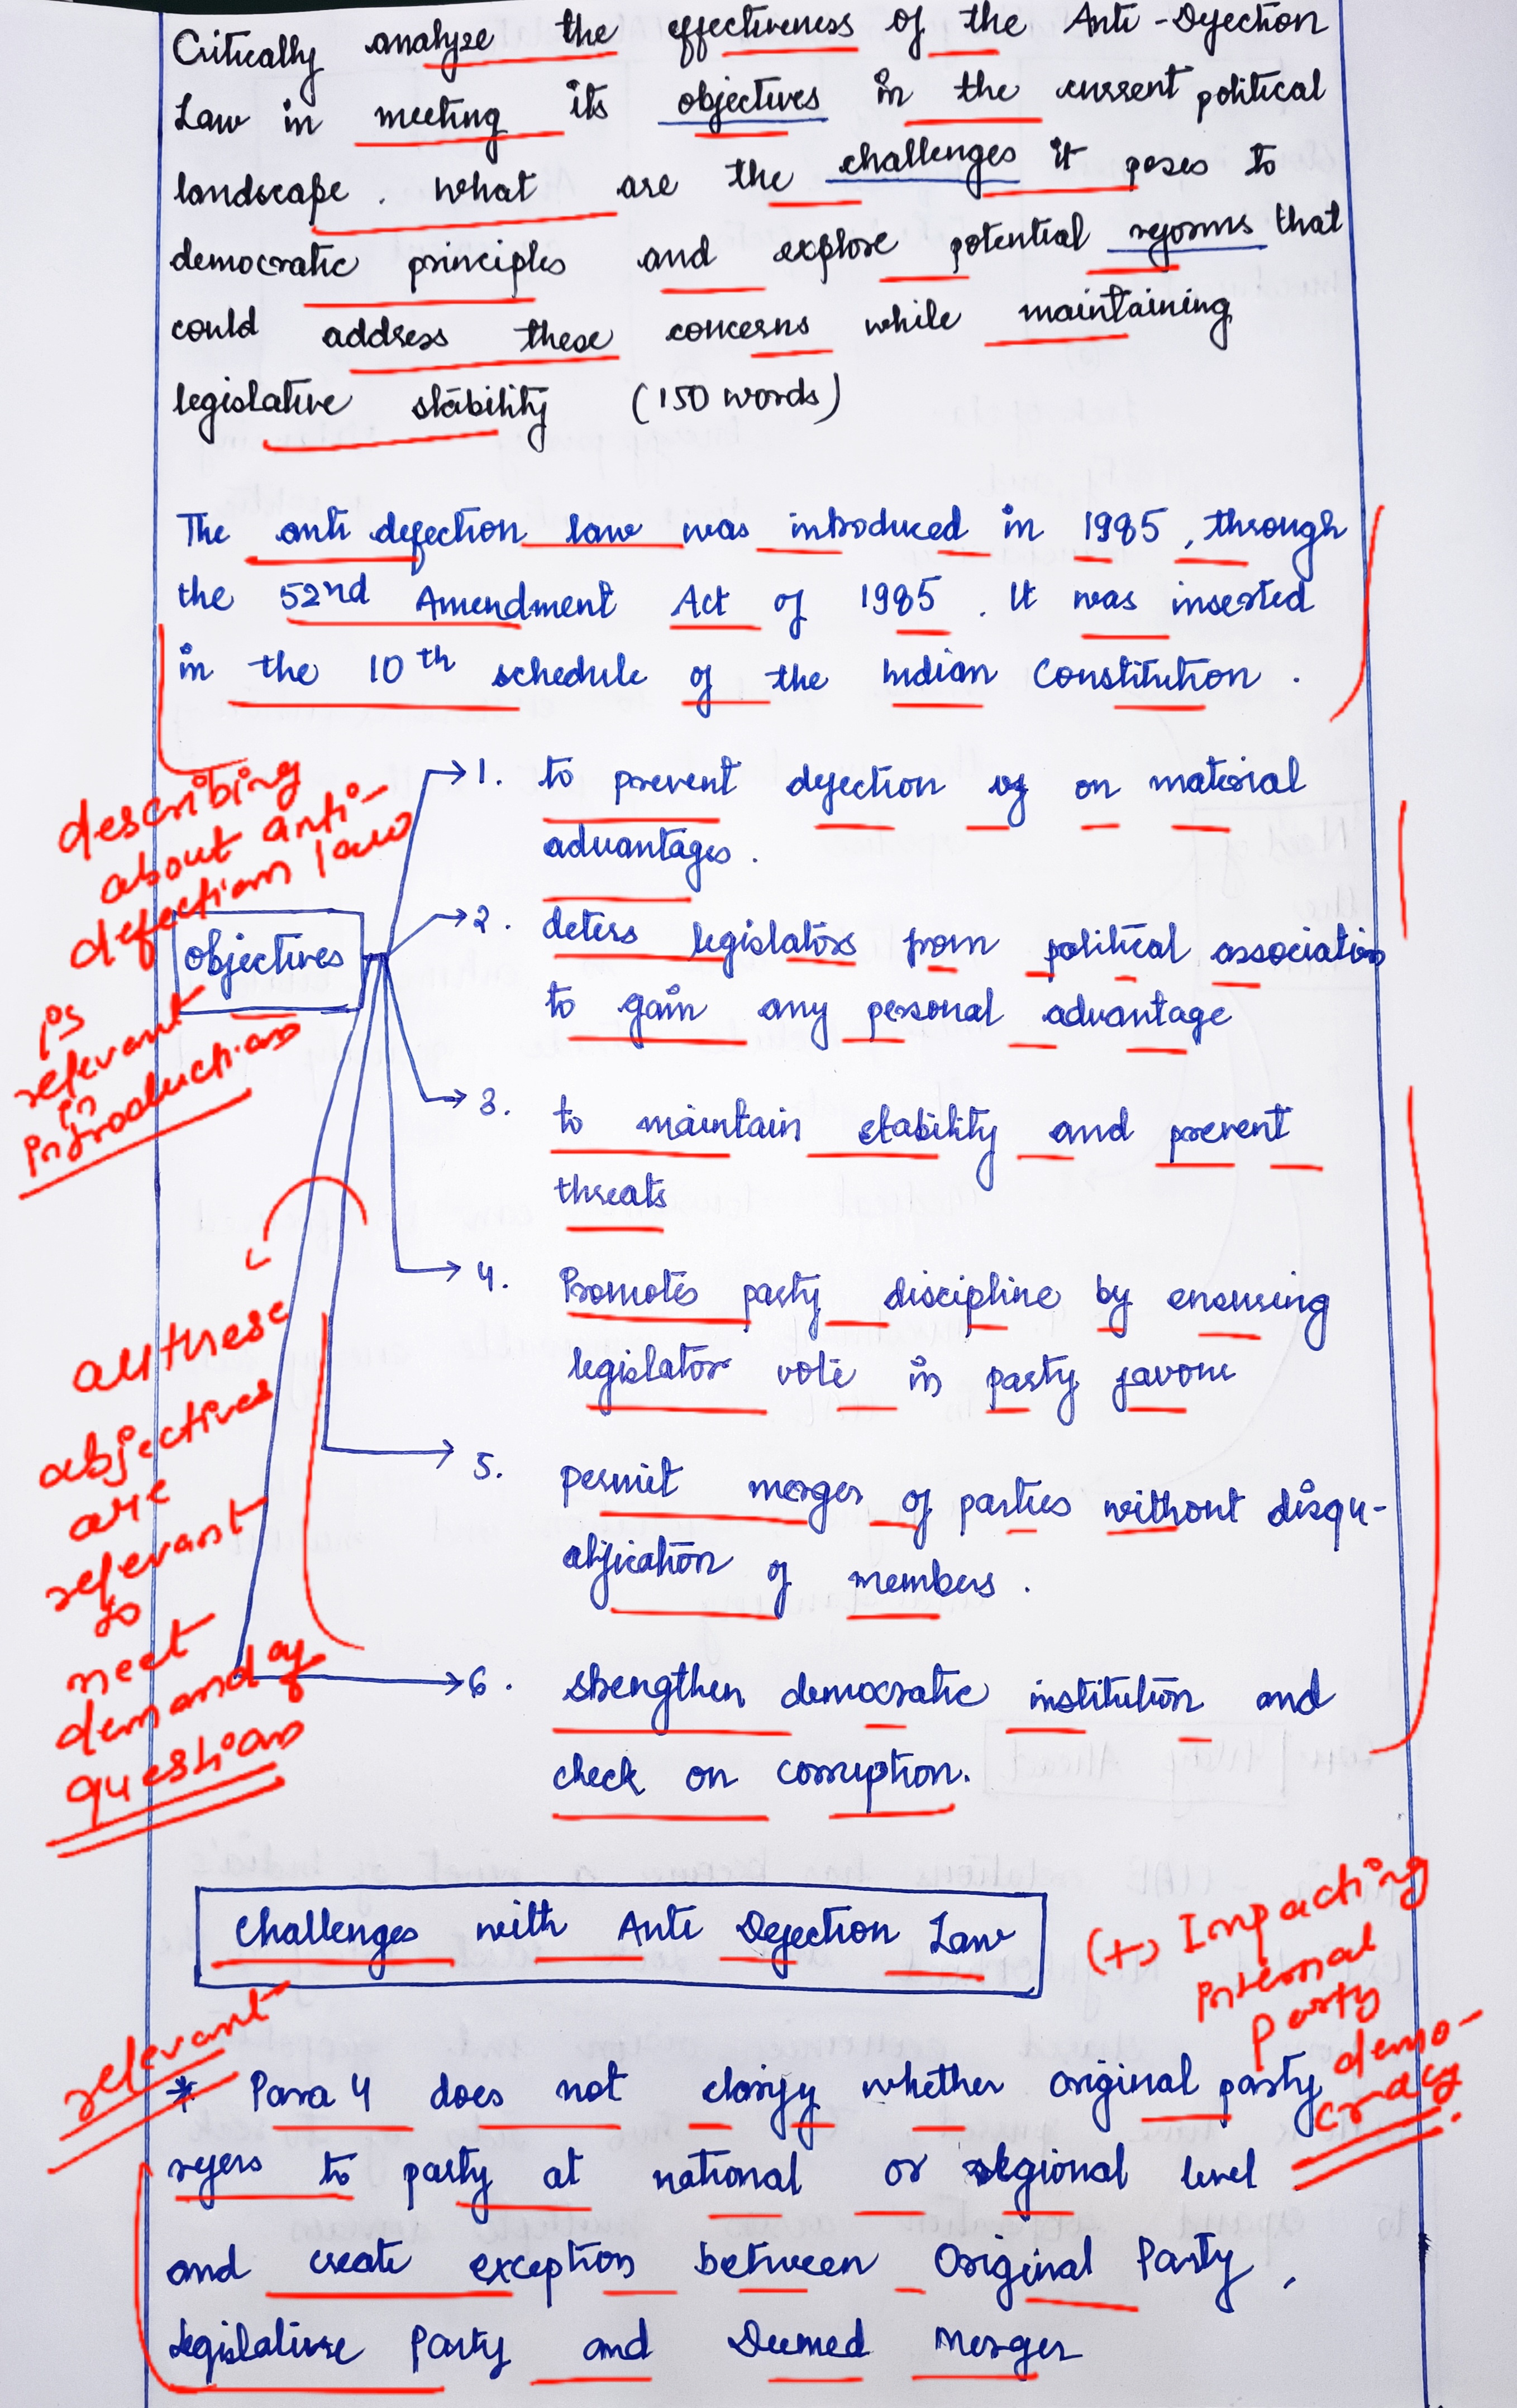 Critically analyze the effectiveness of the Anti-Defection
Law in meeting its objectives in the current political
landscape. what are the challenges it poses to
democratic principles and explore potential reforms that
could address these concerns while maintaining
legislative stability (150 words)
The anti defection law was introduced in 1985, through
the 52nd Amendment Act of 1985. It was inserted
in the 10th schedule of the Indian Constitution.
describing
about anti-
defection law
is
relevant
in
introduction
Objectives
1. to prevent defection of on material
advantages.
2. deters legislators from political association
to gain any personal advantage
3. to maintain stability and prevent
threats
4. Promotes party discipline by ensuring
legislator vote in party favour
5. permit merger of parties without disqu-
alification of members.
6. strengthen democratic institution and
check on corruption.
all these
objectives
are
relevant
to
meet
demand of
question
Challenges with Anti Defection Law
(+) Impacting
internal
party
demo-
cracy
relevant
* Para 4 does not clarify whether original party
refers to party at national or regional level
and create exception between Original Party,
Legislative Party and Deemed Merger